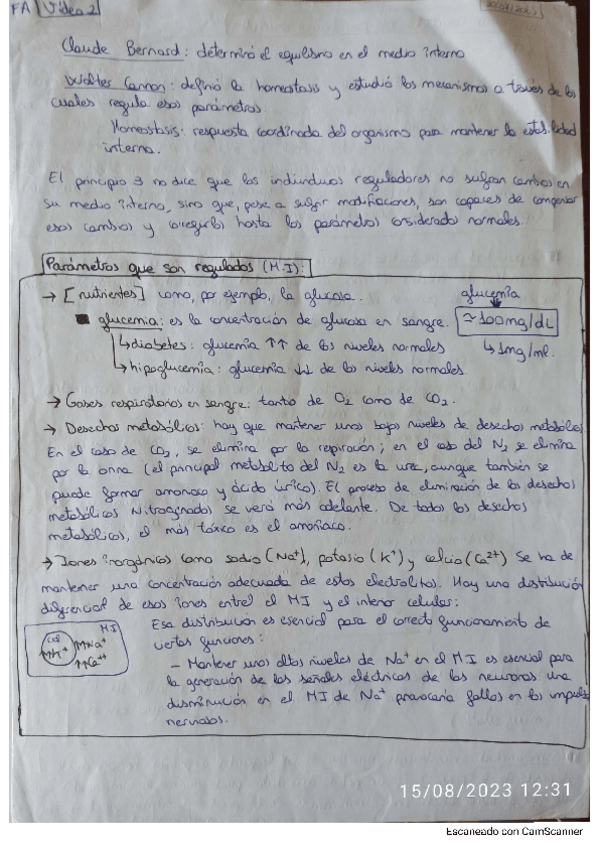 FA Video 2
Claude Bernard: determinó el equilibrio en el medio interno
Walter Cannon: definió la homeostasis y estudió los mecanismos a través de los
cuales regula esos parámetros
Homeostasis: respuesta coordinada del organismo para mantener la estabilidad
interna.
El principio 3 no dice que los individuos reguladores no sufran cambios en
su medio interno, sino que, pese a sufrir modificaciones, son capaces de compensar
esos cambios y corregirlos hasta los parámetros considerados normales.
Parámetros que son regulados (M.I):
→ [nutrientes] como, por ejemplo, la glucosa.
glucemia
■ glucemia: es la concentración de glucosa en sangre.
≃ 100mg/dL
↳ diabetes: glucemia ↑↑ de los niveles normales
↳ 1mg/mL.
↳ hipoglucemia: glucemia ↓↓ de los niveles normales
→ Gases respiratorios en sangre: tanto de O₂ como de CO₂.
→ Desechos metabólicos: hay que mantener unos bajos niveles de desechos metabólicos
En el caso de CO₂, se elimina por la respiración; en el caso del N₂ se elimina
por la orina (el principal metabolito del N₂ es la urea, aunque también se
puede formar amoniaco y ácido úrico). El proceso de eliminación de los desechos
metabólicos Nitrogenados se verá más adelante. De todos los desechos
metabólicos, el más tóxico es el amoniaco.
→ Iones inorgánicos como sodio (Na⁺), potasio (K⁺) y calcio (Ca²⁺) Se ha de
mantener una concentración adecuada de estos electrolitos. Hay una distribución
diferencial de esos iones entre el MI y el interior celular:
M.I
↑↑K⁺ ↑↑Na⁺
↑↑Ca²⁺
Esa distribución es esencial para el correcto funcionamiento de
ciertas funciones:
– Mantener unos altos niveles de Na⁺ en el MI es esencial para
la generación de las señales eléctricas de las neuronas una
disminución en el MI de Na⁺ provocaría fallos en los impulsos
nerviosos.
15/08/2023 12:31
Escaneado con CamScanner